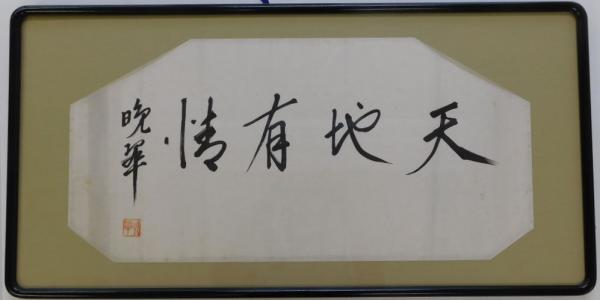 天地有情
晚翠